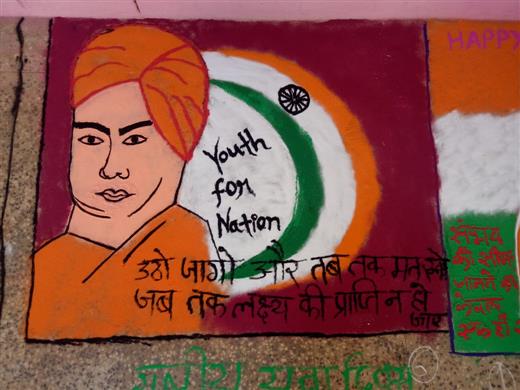 Youth
for
Nation
उठो जागो और तब तक मत रुको
जब तक लक्ष्य की प्राप्ति न हो
जाए
HAPPY
संभव
की सीमा
जानने का
केवल